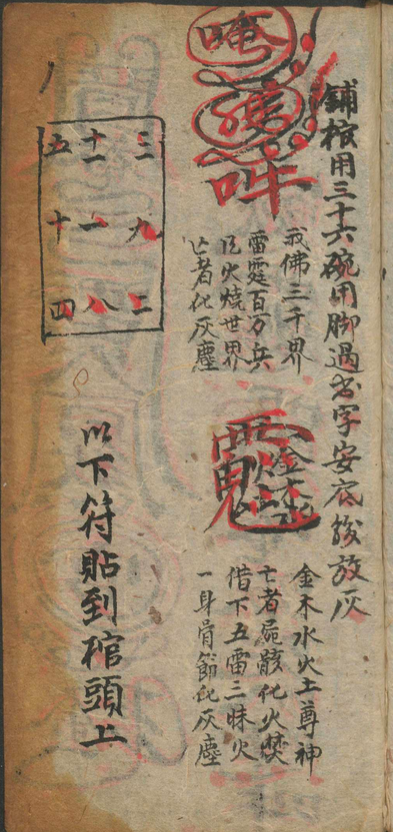 鋪棺用三十六碗用脚過字安底後放灰
唵
吽
我佛三千界
雷霆百万兵
火燒世界
亡者化灰塵
金木水火土尊神
亡者屍骸化火焚
借下五雷三昧火
一身骨節化灰塵
三 九 二
十一 一 八
五 十 四
以下符貼到棺頭上